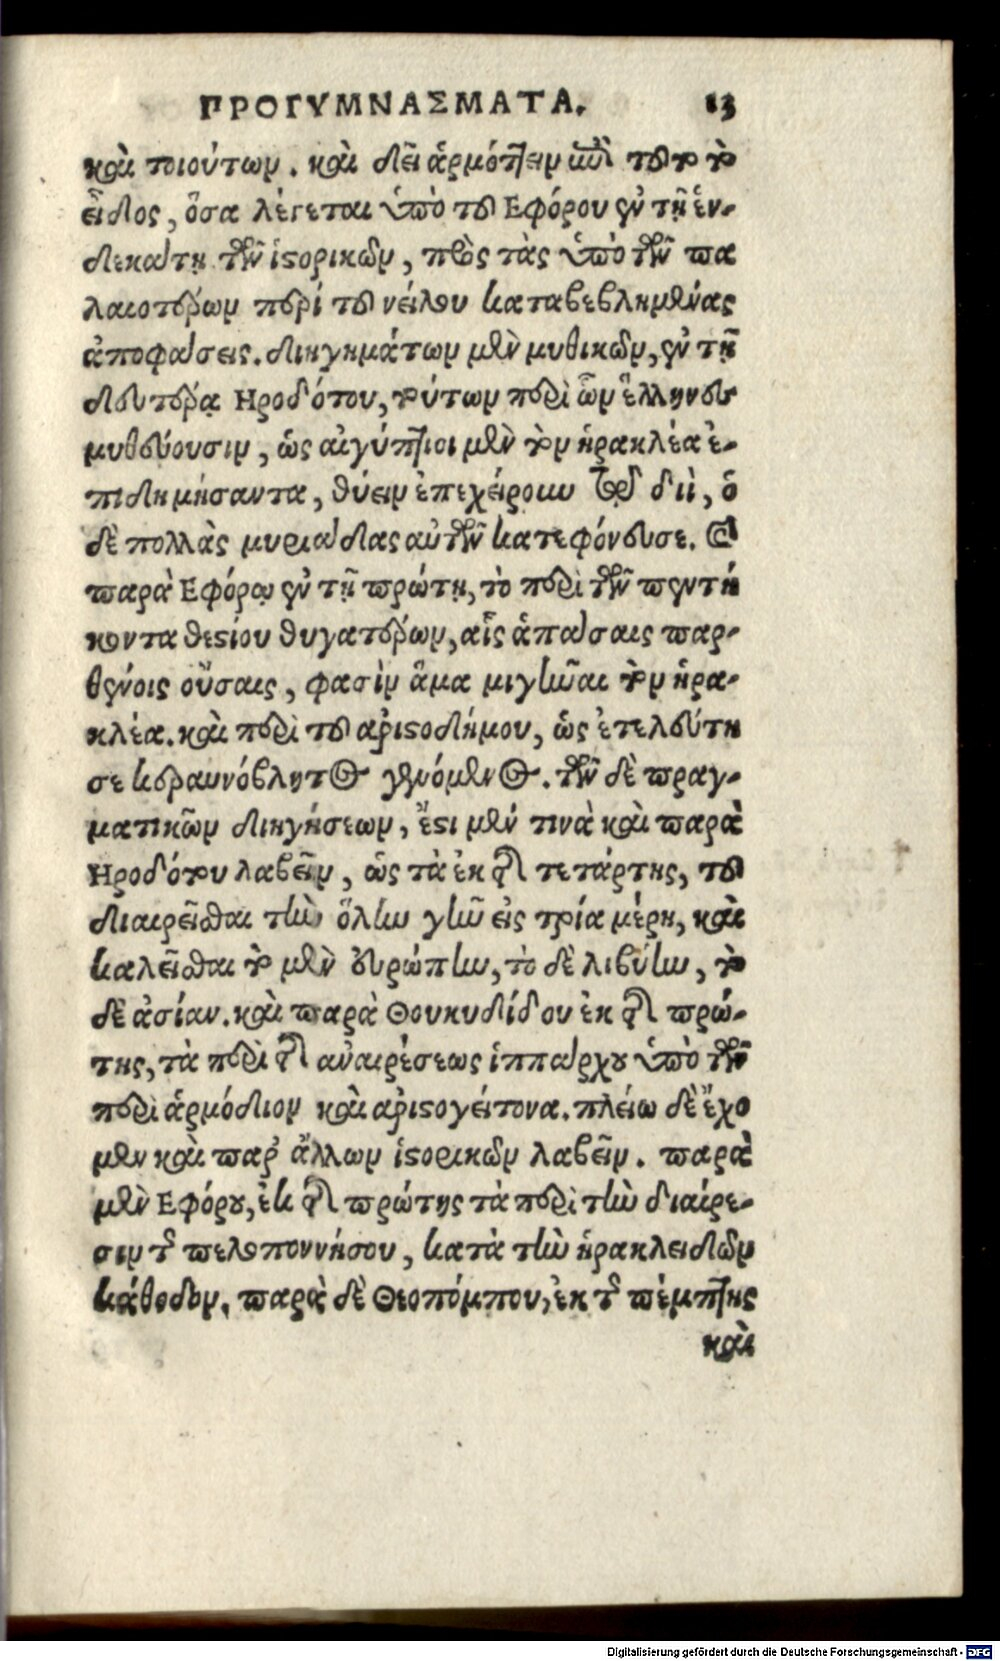 ΠΡΟΓΥΜΝΑΣΜΑΤΑ. 13
καὶ τοιούτων. καὶ δεῖ ἁρμόττειν τοῦτο τὸ
εἶδος, ὅσα λέγεται ὑπὸ τοῦ Εφόρου ἐν τῇ ἑν-
δεκάτῃ τῶν ἱστορικῶν, πρὸς τὰς ὑπὸ τῶν πα
λαιοτέρων περί τοῦ νείλου καταβεβλημένας
ἀποφάσεις. διηγημάτων μὲν μυθικῶν, ἐν τῇ
δευτέρᾳ Ηροδότου, τούτων περὶ ὧν ἕλληνες
μυθεύουσιν, ὡς αἰγύπτιοι μὲν τὸν ἡρακλέα ἐ-
πιδημήσαντα, θύειν ἐπεχείρουν τῷ διὶ, ὁ
δὲ πολλὰς μυριάδας αὐτῶν κατεφόνευσε. καὶ
παρὰ Εφόρῳ ἐν τῇ πρώτῃ, τὸ περὶ τῶν πεντή
κοντα θεστίου θυγατέρων, αἷς ἁπάσαις παρ-
θένοις οὔσαις, φασὶν ἅμα μιγῆναι τὸν ἡρα-
κλέα. καὶ περὶ τοῦ αριστοδήμου, ὡς ἐτελεύτη
σε κεραυνόβλητος γενόμενος. τῶν δὲ πραγ-
ματικῶν διηγήσεων, ἔστι μέν τινὰ καὶ παρὰ
Ηροδότου λαβεῖν, ὡς τὰ ἐκ τῆς τετάρτης, τοῦ
διαιρεῖσθαι τὴν ὅλην γῆν εἰς τρία μέρη, καὶ
καλεῖσθαι τὸ μὲν ευρώπην, τὸ δὲ λιβύην, τὸ
δὲ ἀσίαν. καὶ παρὰ Θουκυδίδου ἐκ τῆς πρώ-
της, τὰ περὶ τῆς αναιρέσεως ἱππάρχου ὑπὸ τῶν
περὶ ἁρμόδιον καὶ αριστογείτονα. πλείω δὲ ἔχο
μεν καὶ παρ' ἄλλων ἱστορικῶν λαβεῖν. παρὰ
μὲν Εφόρου, ἐκ τῆς πρώτης τὰ περὶ τὴν διαίρε-
σιν τῆς πελοποννήσου, κατὰ τὴν ἡρακλειδῶν
κάθοδον. παρὰ δὲ Θεοπόμπου, ἐκ τῆς πέμπτης
καὶ
Digitalisierung gefördert durch die Deutsche Forschungsgemeinschaft - DFG